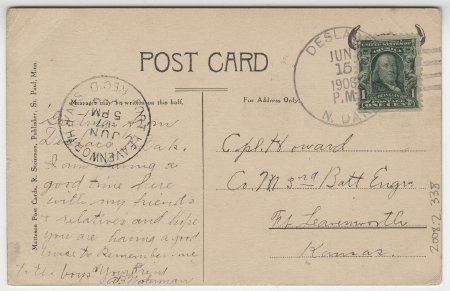 POST CARD
Messages may be written on this half.
For Address Only.
DESLA
JUN
15
1908
P.M.
N. DAK
UNITED STATES
1
ONE CENT
FORT LEAVENWORTH KANS
REC'D.
JUN
5 PM
I am having a
good time here
with my friends
& relatives and hope
you are having a good
time to Remember me
to the boys Your friend
Capt. Howard
Co. M 3rd Batt Engrs
Ft. Leavenworth
Kansas.
2008.2.338
Souvenir Post Cards, R. Steinman, Publisher, St. Paul, Minn.